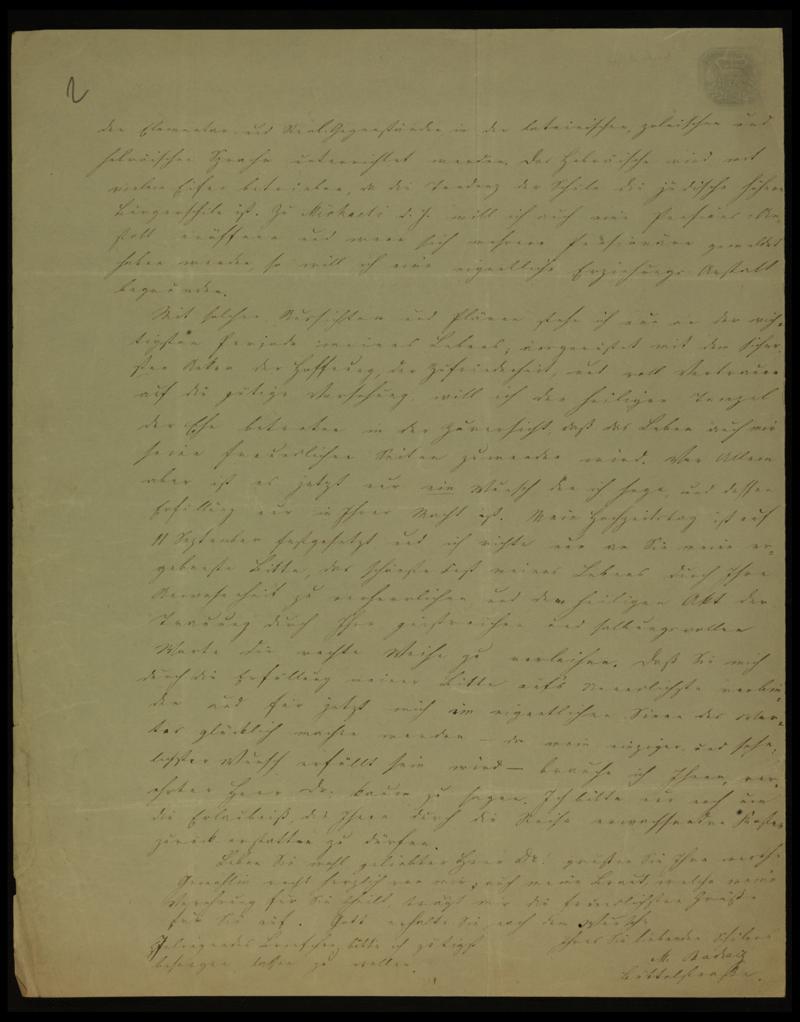 2
den Elementar- und Real-Gegenständen in der lateinischen, polnischen und
hebräischen Sprache unterrichtet werden. Das Hebräische wird mit
vielem Eifer betrieben, da die Tendenz der Schule die jüdische höhere
Bürgerschule ist. Zu Michaeli d. J. will ich auch eine Pensions-An-
stalt eröffnen und wenn sich mehrere Pensionäre gemeldet
haben werden so will ich eine eigentliche Erziehungs-Anstalt
begründen.
Mit solchen Aussichten und Plänen stehe ich nun an der wich-
tigsten Periode meines Lebens; ausgerüstet mit dem sicher-
sten Anker der Hoffnung, der Zufriedenheit, und voll Vertrauen
auf die gütige Vorsehung, will ich den heiligen Tempel
der Ehe betreten in der Zuversicht, daß das Leben auch mir
seine freundlichen Seiten zuwenden wird. Vor Allem
aber ist es jetzt nur ein Wunsch den ich hege, und dessen
Erfüllung nur in Ihrer Macht ist. Mein Hochzeitstag ist auf
11 September festgesetzt und ich richte nun an Sie meine er-
gebenste Bitte, das schönste Fest meines Lebens durch Ihre
Anwesenheit zu verherrlichen und dem heiligen Akt der
Trauung durch Ihre geistreichen und salbungsvollen
Worte die rechte Weihe zu verleihen. Daß Sie mich
durch die Erfüllung meiner Bitte aufs Unendlichste verbin-
den und für jetzt mich im eigentlichen Sinne des Wor-
tes glücklich machen werden — da mein einziger und sehn-
lichster Wunsch erfüllt sein wird — brauche ich Ihnen, ver-
ehrter Herr Dr. kaum zu sagen. Ich bitte nur noch um
die Erlaubniß, die Ihnen durch die Reise erwachsenden Kosten
zurück erstatten zu dürfen.
Leben Sie wohl geliebter Herr Dr.! grüßen Sie Ihre werthe
Gemahlin recht herzlich von mir; auch meine Braut, welche meine
Verehrung für Sie theilt, trägt mir die freundlichsten Grüße
für Sie auf. Gott erhalte Sie nach dem Wunsche
Ihres Sie liebenden Schülers
Inliegendes Briefchen bitte ich gütigst
besorgen lassen zu wollen.
M.